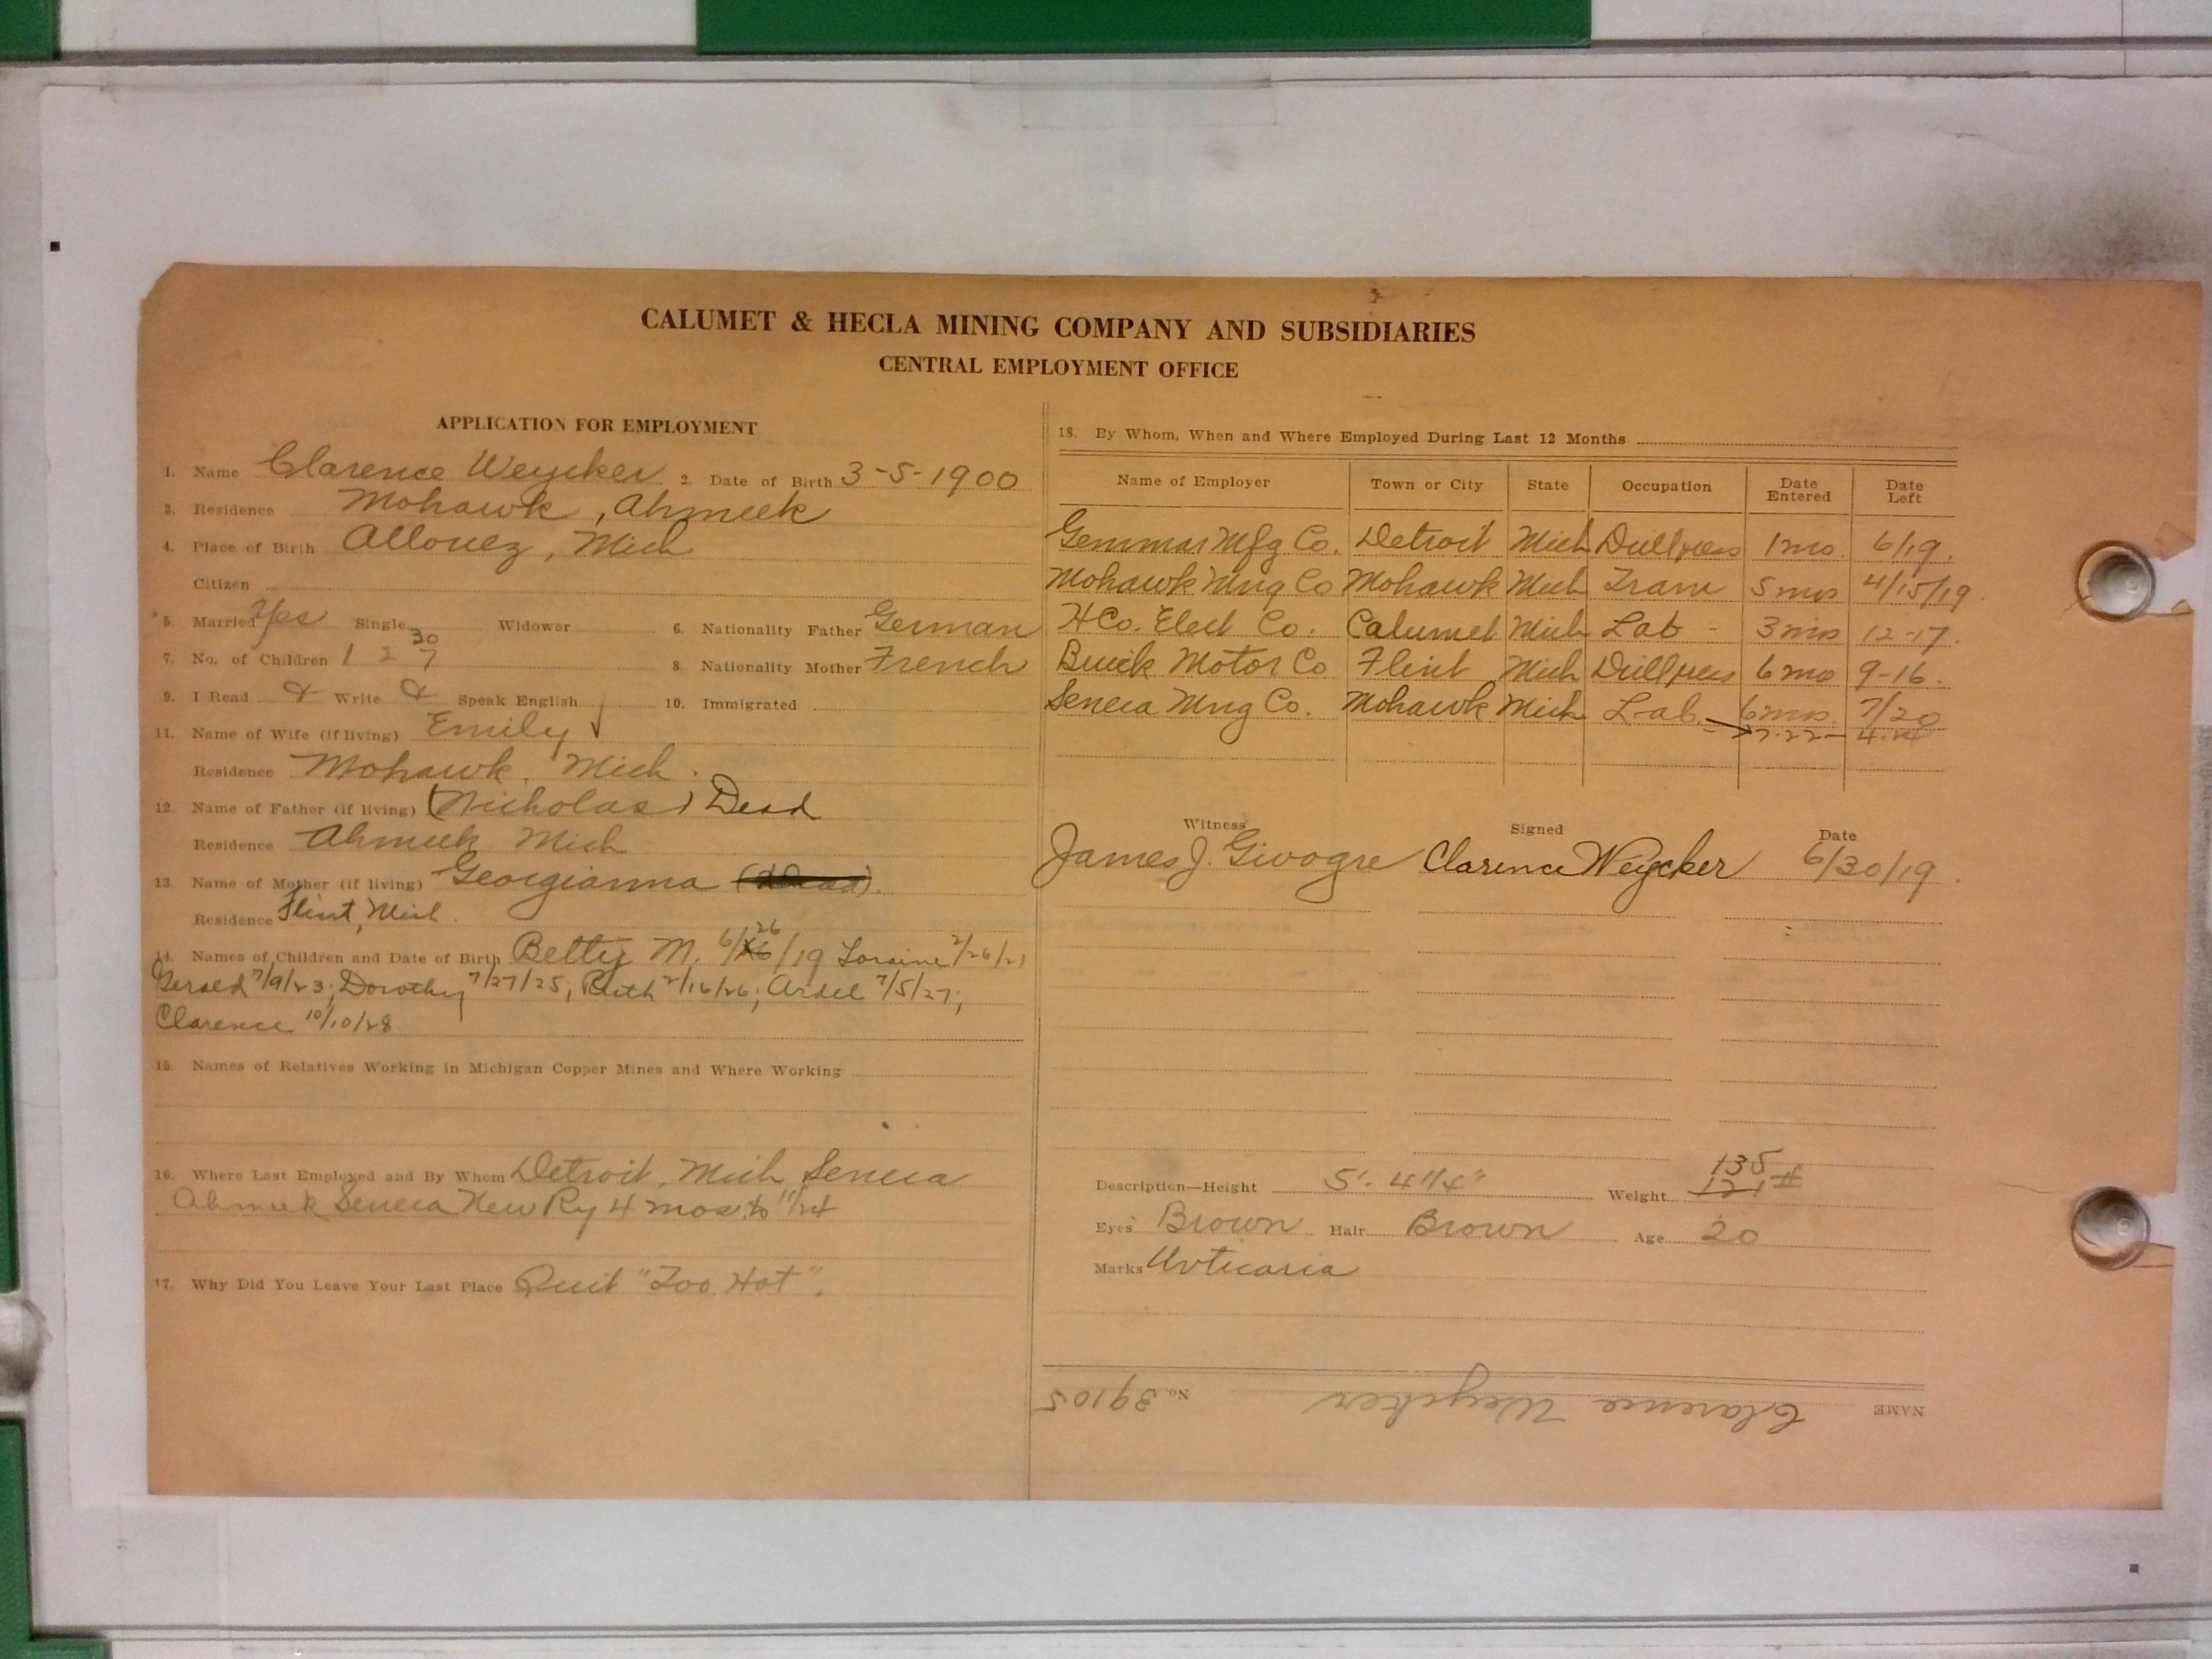 CALUMET & HECLA MINING COMPANY AND SUBSIDIARIES
CENTRAL EMPLOYMENT OFFICE
APPLICATION FOR EMPLOYMENT
1. Name Clarence Weycker 2. Date of Birth 3-5-1900
3. Residence Mohawk, Ahmeek
4. Place of Birth Allouez, Mich
Citizen
5. Married Yes Single Widower 6. Nationality Father German
30
7. No. of Children 1 2 7 8. Nationality Mother French
9. I Read & Write & Speak English 10. Immigrated
11. Name of Wife (if living) Emily
Residence Mohawk, Mich.
12. Name of Father (if living) (Nicholas) Dead
Residence Ahmeek Mich
13. Name of Mother (if living) Georgianna (Dead).
Residence Flint, Mich.
14. Names of Children and Date of Birth Betty M. 6/26/19 Loraine 2/26/21
7/9/23; Dorothy 7/27/25; Ruth 2/16/26; Ardel 7/5/27;
Clarence 10/10/28
15. Names of Relatives Working in Michigan Copper Mines and Where Working
16. Where Last Employed and By Whom Detroit, Mich Seneca
Ahmeek Seneca New Ry 4 mos. to 11/24
17. Why Did You Leave Your Last Place Quit "Too Hot".
18. By Whom, When and Where Employed During Last 12 Months
Name of Employer Town or City State Occupation Date Entered Date Left
Gemmar Mfg Co. Detroit Mich Drillpress 1 mo. 6/19.
Mohawk Mng Co Mohawk Mich Tram 5 mos 4/15/19
H Co. Elect Co. Calumet Mich Lab - 3 mos 12-17.
Buick Motor Co Flint Mich Drillpress 6 mo 9-16.
Seneca Mng Co. Mohawk Mich Lab. 6 mos. 7/20
7-22-
Witness Signed Date
James J. Givogre Clarence Weycker 6/30/19
135
Description—Height 5'. 4 1/4" Weight 121 #
Eyes Brown Hair Brown Age 20
Marks Urticaria
NAME Clarence Weycker No. 39105